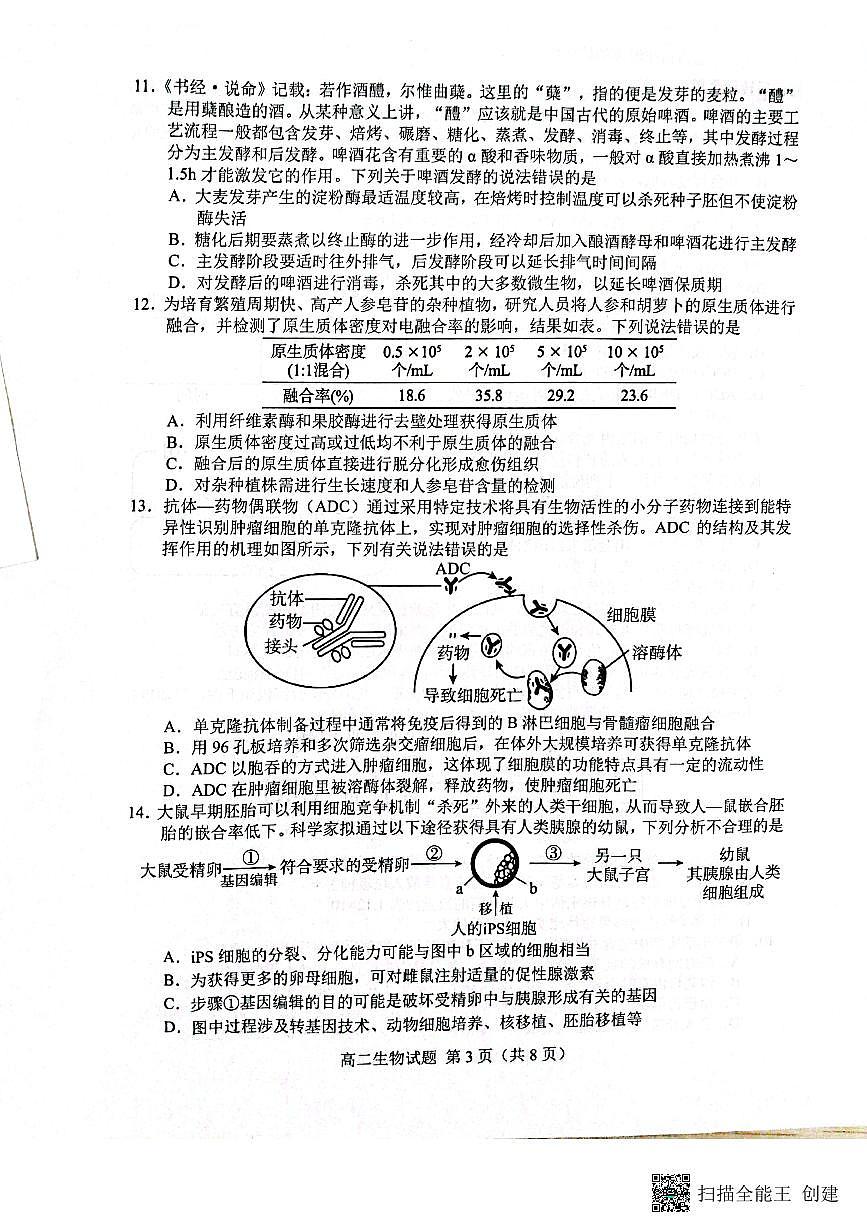 11.《书经·说命》记载：若作酒醴，尔惟曲糵。这里的“糵”，指的便是发芽的麦粒。“醴”
是用糵酿造的酒。从某种意义上讲，“醴”应该就是中国古代的原始啤酒。啤酒的主要工
艺流程一般都包含发芽、焙烤、碾磨、糖化、蒸煮、发酵、消毒、终止等，其中发酵过程
分为主发酵和后发酵。啤酒花含有重要的α酸和香味物质，一般对α酸直接加热煮沸 1～
1.5h 才能激发它的作用。下列关于啤酒发酵的说法错误的是
A．大麦发芽产生的淀粉酶最适温度较高，在焙烤时控制温度可以杀死种子胚但不使淀粉
酶失活
B．糖化后期要蒸煮以终止酶的进一步作用，经冷却后加入酿酒酵母和啤酒花进行主发酵
C．主发酵阶段要适时往外排气，后发酵阶段可以延长排气时间间隔
D．对发酵后的啤酒进行消毒，杀死其中的大多数微生物，以延长啤酒保质期
12．为培育繁殖周期快、高产人参皂苷的杂种植物，研究人员将人参和胡萝卜的原生质体进行
融合，并检测了原生质体密度对电融合率的影响，结果如表。下列说法错误的是
原生质体密度 0.5×10⁵ 2×10⁵ 5×10⁵ 10×10⁵
(1:1混合) 个/mL 个/mL 个/mL 个/mL
融合率(%) 18.6 35.8 29.2 23.6
A．利用纤维素酶和果胶酶进行去壁处理获得原生质体
B．原生质体密度过高或过低均不利于原生质体的融合
C．融合后的原生质体直接进行脱分化形成愈伤组织
D．对杂种植株需进行生长速度和人参皂苷含量的检测
13．抗体—药物偶联物（ADC）通过采用特定技术将具有生物活性的小分子药物连接到能特
异性识别肿瘤细胞的单克隆抗体上，实现对肿瘤细胞的选择性杀伤。ADC 的结构及其发
挥作用的机理如图所示，下列有关说法错误的是
ADC
抗体
药物
接头
细胞膜
药物
溶酶体
导致细胞死亡
A．单克隆抗体制备过程中通常将免疫后得到的 B 淋巴细胞与骨髓瘤细胞融合
B．用 96 孔板培养和多次筛选杂交瘤细胞后，在体外大规模培养可获得单克隆抗体
C．ADC 以胞吞的方式进入肿瘤细胞，这体现了细胞膜的功能特点具有一定的流动性
D．ADC 在肿瘤细胞里被溶酶体裂解，释放药物，使肿瘤细胞死亡
14．大鼠早期胚胎可以利用细胞竞争机制“杀死”外来的人类干细胞，从而导致人—鼠嵌合胚
胎的嵌合率低下。科学家拟通过以下途径获得具有人类胰腺的幼鼠，下列分析不合理的是
大鼠受精卵 ① 基因编辑 符合要求的受精卵 ② ③ 另一只 幼鼠
大鼠子宫 其胰腺由人类
细胞组成
a b
移植
人的iPS细胞
A．iPS 细胞的分裂、分化能力可能与图中 b 区域的细胞相当
B．为获得更多的卵母细胞，可对雌鼠注射适量的促性腺激素
C．步骤①基因编辑的目的可能是破坏受精卵中与胰腺形成有关的基因
D．图中过程涉及转基因技术、动物细胞培养、核移植、胚胎移植等
高二生物试题 第 3 页（共 8 页）
扫描全能王 创建